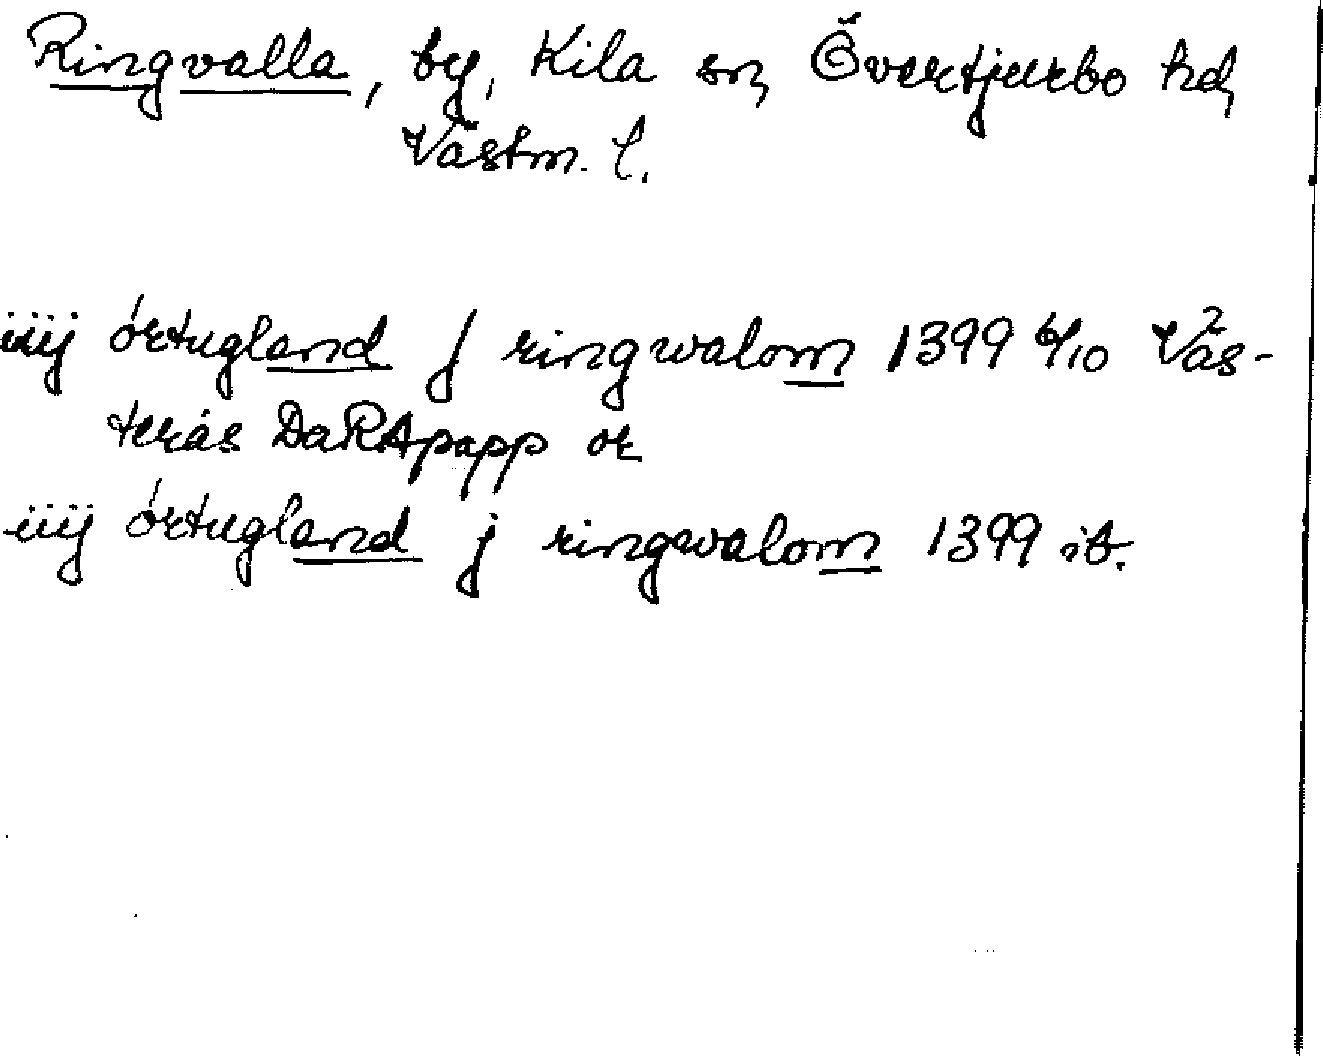 Ringvalla, by, Kila sn, Övertjurbo hd,
Västm. l.
iiij órtugland j ringwalom 1399 6/10 Väs-
terås DaRApapp or
iiij órtugland j ringwalom 1399 ib.